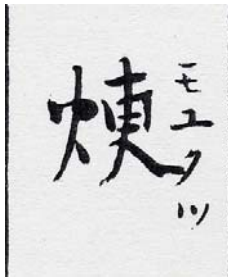 煉
モユクツ